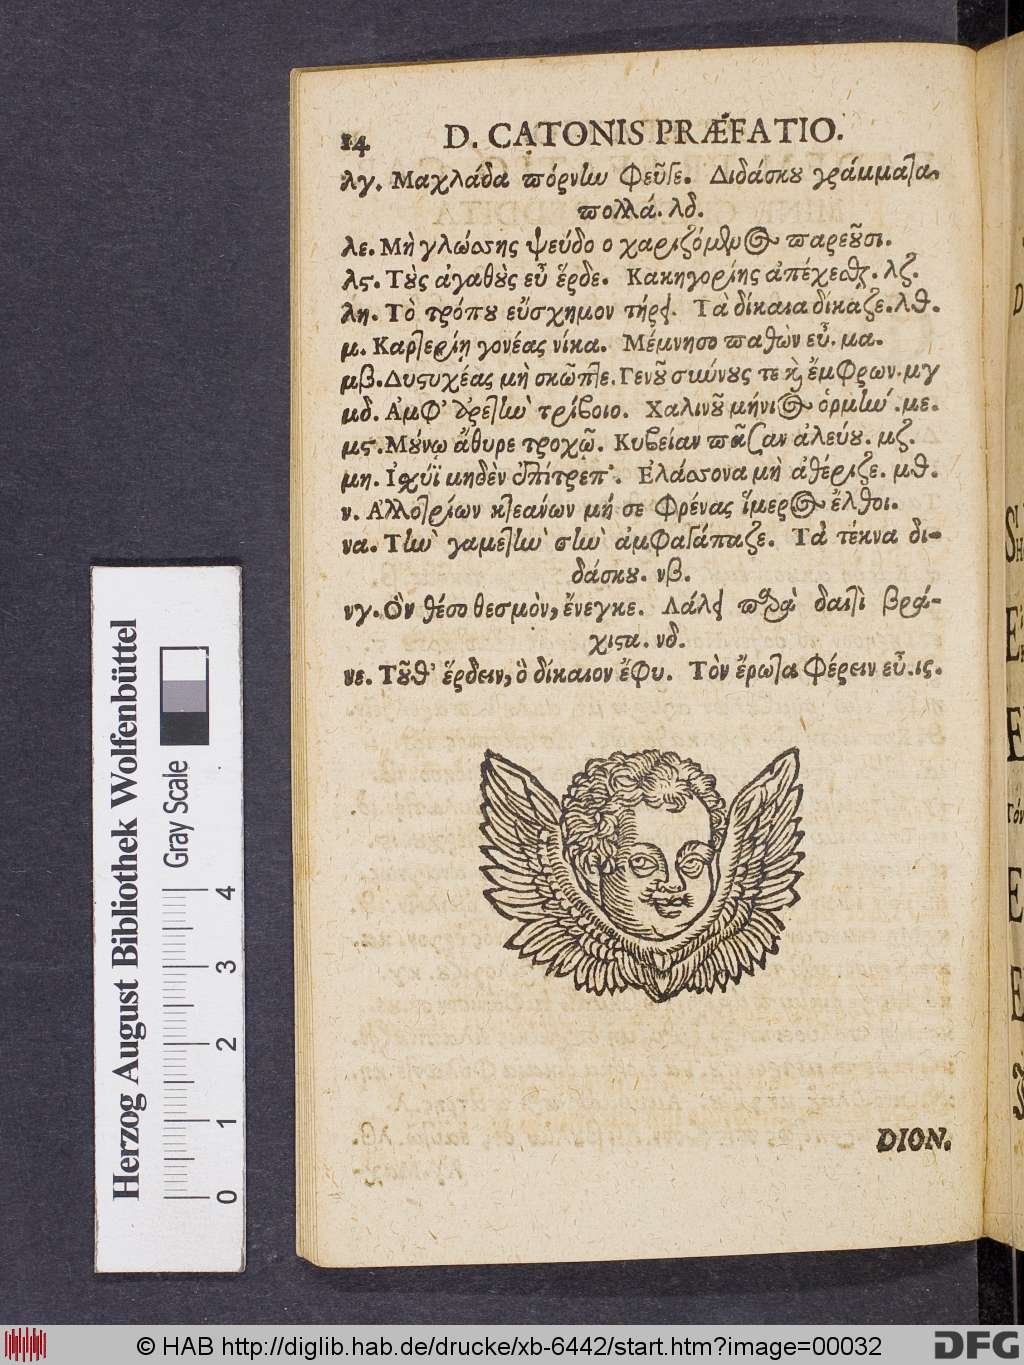 14 D. CATONIS PRÆFATIO.
λγ. Μαχλάδα πόρνην φεῦγε. Διδάσκου γράμματα
πολλά. λδ.
λε. Μὴ γλώσσης ψεύδο ο χαριζόμενος παρεοῦσι.
λϛ. Τοὺς ἀγαθοὺς εὖ ἕρδε. Κακηγορίης ἀπέχεσθαι. λζ.
λη. Τὸ τρόπου εὔσχημον τήρει. Τὰ δίκαια δίκαζε. λθ.
μ. Καρτερίῃ γονέας νίκα. Μέμνησο παθὼν εὖ. μα.
μβ. Δυστυχέας μὴ σκῶπτε. Γενοῦ σμύνους τε καὶ ἔμφρων. μγ
μδ. Ἀμφ' ἀρετὴν τρίβοιο. Χαλινοῦ μήνιος ὁρμήν. με.
μϛ. Μούνῳ ἄθυρε τροχῷ. Κυβείαν πᾶσαν ἀλεύου. μζ.
μη. Ἰσχύϊ μηδὲν ἐπίτρεπ'. Ἐλάσσονα μὴ ἀθέριζε. μθ.
ν. Ἀλλοτρίων κτεάνων μή σε φρένας ἵμερος ἔλθοι.
να. Τὴν γαμετὴν σὴν ἀμφαγάπαζε. Τὰ τέκνα δι-
δάσκου. νβ.
νγ. Ὃν θέσο θεσμὸν, ἔνεγκε. Λάλει παρὰ δαιτὶ βρά-
χιστα. νδ.
νε. Τοῦθ' ἕρδειν, ὃ δίκαιον ἔφυ. Τὸν ἔρωτα φέρειν εὖ. ις.
DION.
Herzog August Bibliothek Wolfenbüttel
Gray Scale
0 1 2 3 4
© HAB http://diglib.hab.de/drucke/xb-6442/start.htm?image=00032
DFG